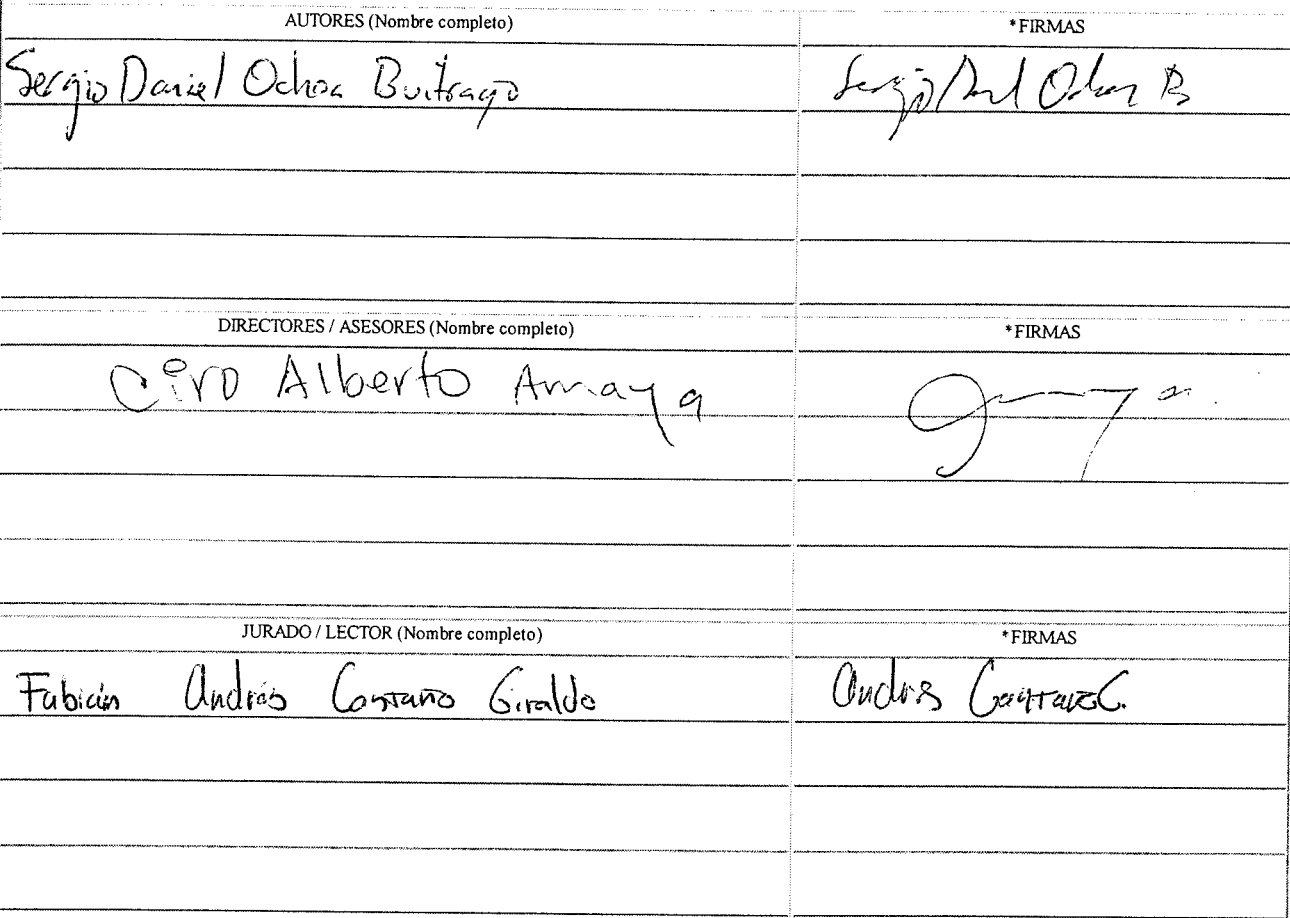 AUTORES (Nombre completo) *FIRMAS
Sergio Daniel Ochoa Buitrago Sergio Ochoa B
DIRECTORES / ASESORES (Nombre completo) *FIRMAS
Ciro Alberto Amaya
JURADO / LECTOR (Nombre completo) *FIRMAS
Fabián Andrés Castaño Giraldo Andrés Castaño G.